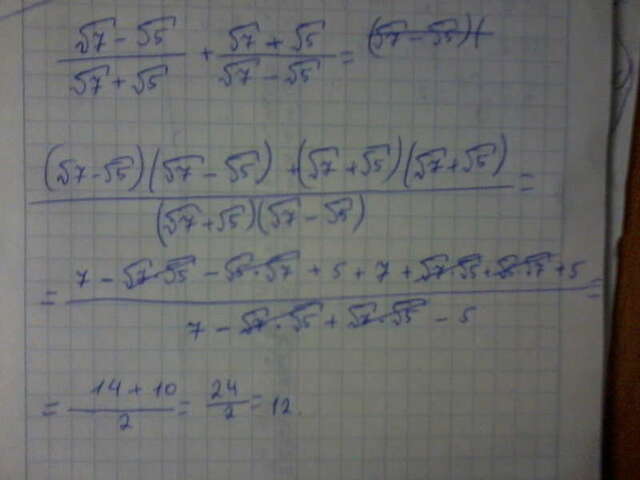 (√7 - √5)/(√7 + √5) + (√7 + √5)/(√7 - √5) = (√7 - √5)(
((√7 - √5)(√7 - √5) + (√7 + √5)(√7 + √5))/((√7 + √5)(√7 - √5)) =
= (7 - √7·√5 - √5·√7 + 5 + 7 + √7·√5 + √5·√7 + 5)/(7 - √7·√5 + √7·√5 - 5) =
= (14 + 10)/2 = 24/2 = 12.